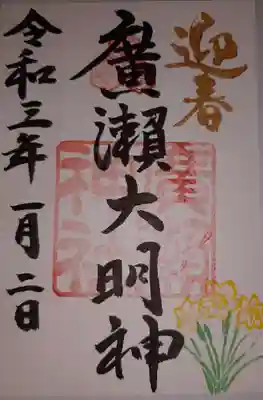 迎春
廣瀬大明神
令和三年一月二日